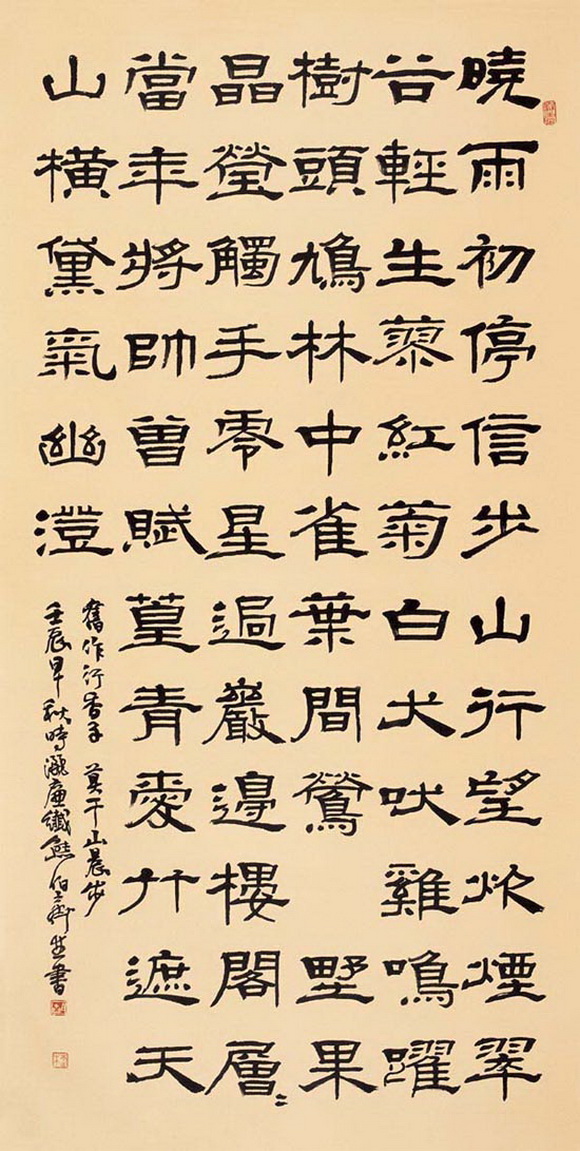 曉雨初停信步山行望炊煙翠
谷輕生蓼紅菊白犬吠雞鳴躍
樹頭鳩林中雀葉間鶯 野果
晶瑩觸手零星過巖邊樓閣層〻
當年將帥曾賦篁青愛竹遮天
山橫黛氣幽澄
舊作行香子 莫干山晨步
壬辰早秋時 書